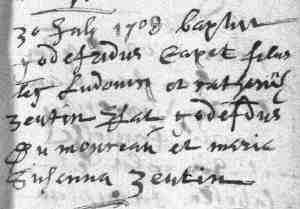 30 July 1708 baptisat
godefridus Capet filius
leg Ludovici et catharinae
Zeutin st at godefridus
Dumonceau et maria
Susanna Zeutin